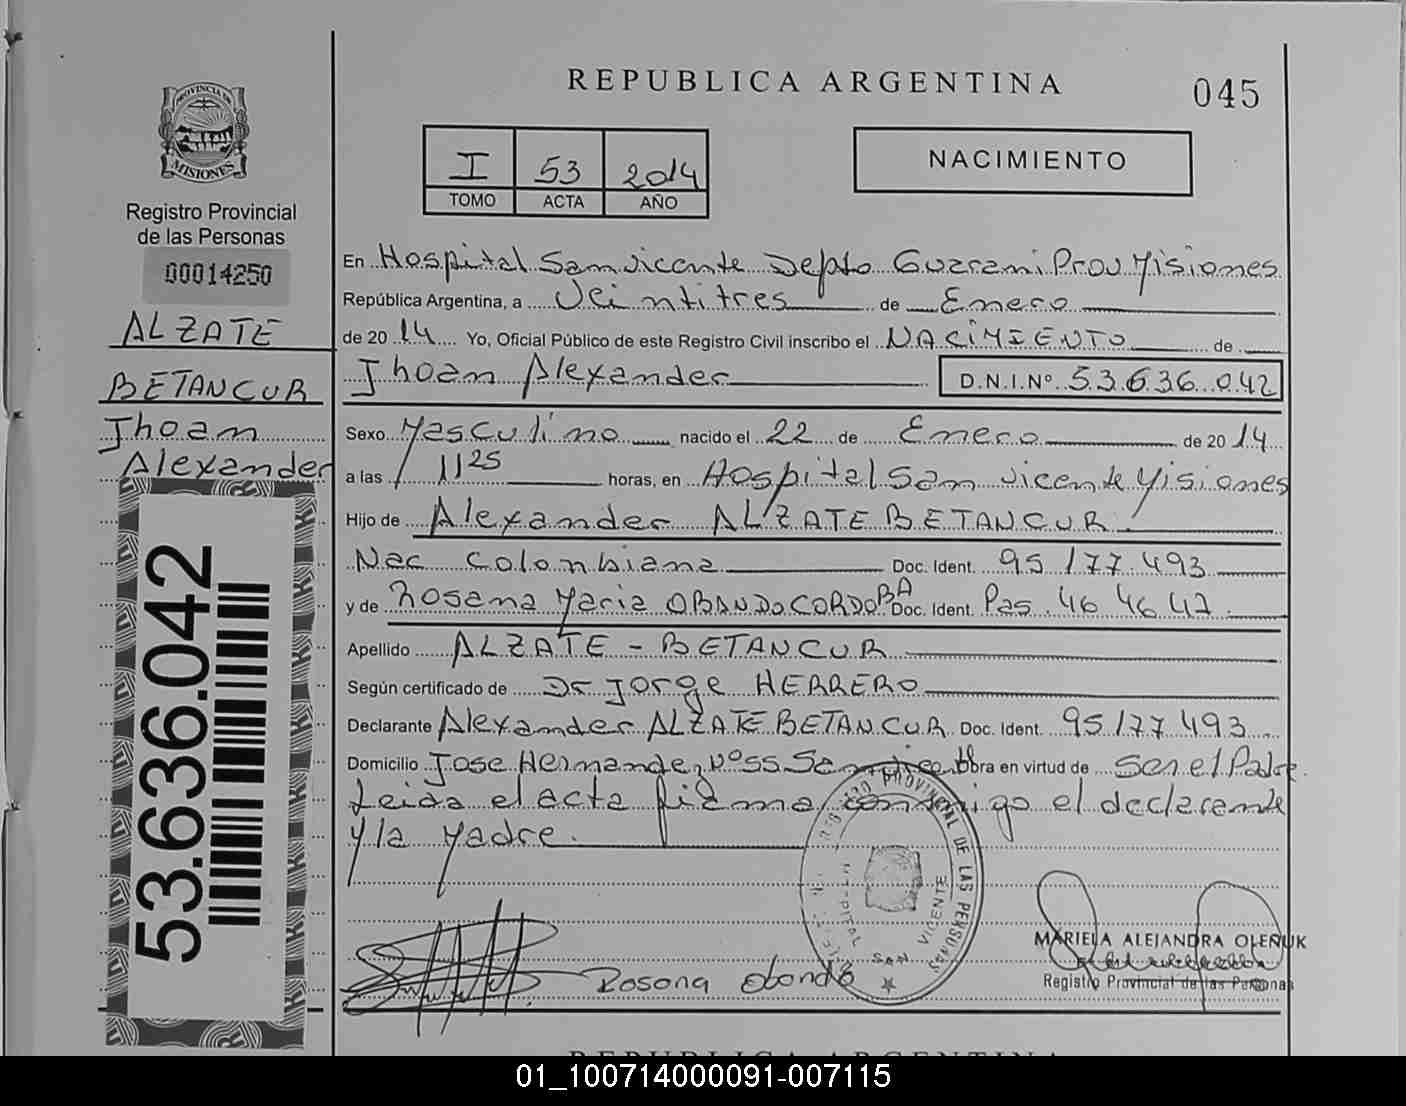 REPUBLICA ARGENTINA
045
PROVINCIA DE
MISIONES
Registro Provincial
de las Personas
00014250
ALZATE
BETANCUR
Jhoan
Alexander
53.636.042
I 53 2014
TOMO ACTA AÑO
NACIMIENTO
En Hospital San Vicente Depto Guarani Prov Misiones
República Argentina, a Veintitres de Enero
de 2014 Yo, Oficial Público de este Registro Civil inscribo el NACIMIENTO de
Jhoan Alexander D.N.I.Nº 53.636.042
Sexo Masculino nacido el 22 de Enero de 2014
a las 1125 horas, en Hospital San Vicente Misiones
Hijo de Alexander ALZATE BETANCUR
Nac Colombiana Doc. Ident. 95177493
y de Rosana Maria OBANDO CORDOBA Doc. Ident. Pas. 46 46 47
Apellido ALZATE - BETANCUR
Según certificado de Dr Jorge HERRERO
Declarante Alexander ALZATE BETANCUR Doc. Ident. 95177493
Domicilio Jose Hernandez Nº55 San Vicente Obra en virtud de Ser el Padre
Leida el acta firma conmigo el declarante
y la Madre.
REGISTRO PROVINCIAL DE LAS PERSONAS
SAN VICENTE
Rosana Obando
MARIELA ALEJANDRA OLEÑUK
Registro Provincial de las Personas
REPUBLICA ARGENTINA
01_100714000091-007115